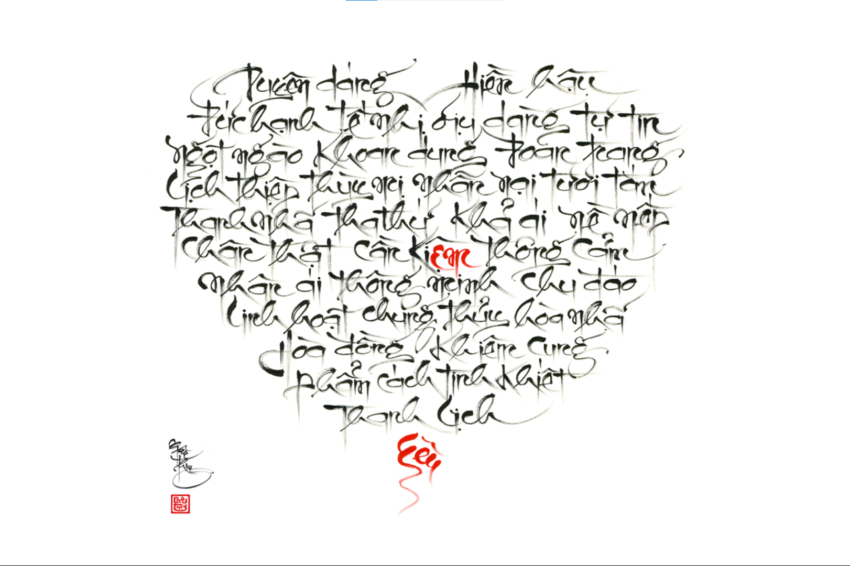 Duyên dáng Hiền hậu
Đức hạnh Tế nhị Dịu dàng Tự tin
Ngọt ngào Khoan dung Đoan trang
Lịch thiệp Thùy mị Nhẫn nại Tươi tắn
Thanh nhã Tha thứ Khả ái Nề nếp
Chân thật Cần kiệm Thông cảm
Nhân ái Thông minh Chu đáo
Linh hoạt Chung thủy hòa nhã
Hòa đồng Khiêm cung
Phẩm cách Tinh khiết
Thanh Lịch
Yêu